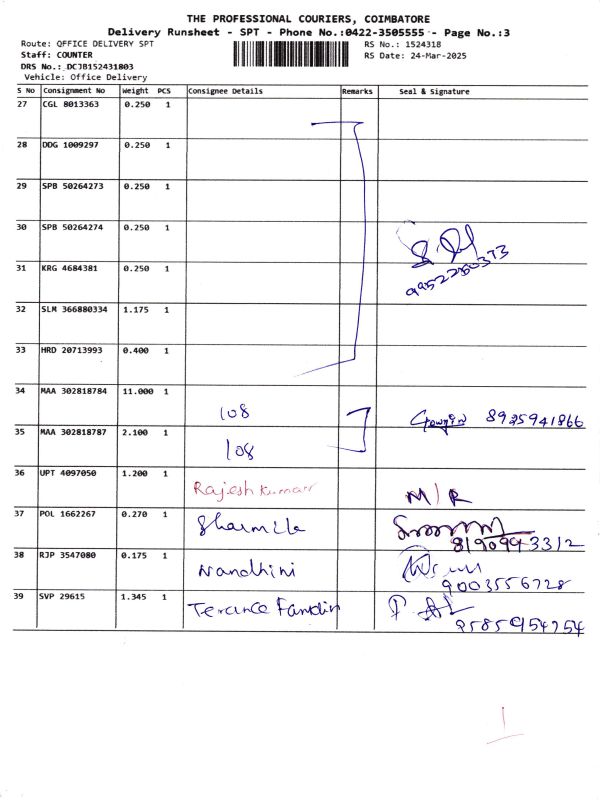 THE PROFESSIONAL COURIERS, COIMBATORE
Delivery Runsheet - SPT - Phone No.:0422-3505555 - Page No.:3
Route: OFFICE DELIVERY SPT RS No.: 1524318
Staff: COUNTER RS Date: 24-Mar-2025
DRS No.: DCJB152431803
Vehicle: Office Delivery
S No Consignment No Weight PCS Consignee Details Remarks Seal & Signature
27 CGL 8013363 0.250 1
28 DDG 1009297 0.250 1
29 SPB 50264273 0.250 1
30 SPB 50264274 0.250 1
31 KRG 4684381 0.250 1
9952250373
32 SLM 366880334 1.175 1
33 HRD 20713993 0.400 1
34 MAA 302818784 11.000 1 108
8925941866
35 MAA 302818787 2.100 1 108
36 UPT 4097050 1.200 1 Rajeshkumar M/R
37 POL 1662267 0.270 1 Sharmila
8190943312
38 RJP 3547080 0.175 1 Nandhini
9003556728
39 SVP 29615 1.345 1 Terance
9585954754